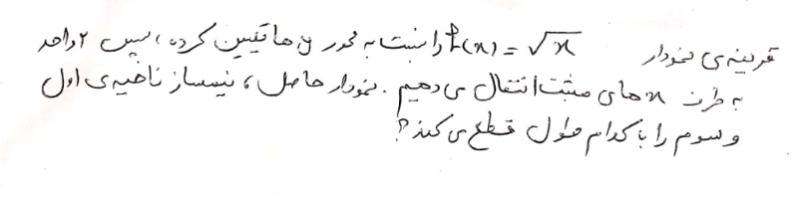 قرینه‌ی نمودار f(x) = √x را نسبت به محور y ها تعیین کرده، سپس ۲ واحد
به طرف x های مثبت انتقال می دهیم. نمودار حاصل، نیمساز ناحیه‌ی اول
و سوم را با کدام طول قطع می کند؟